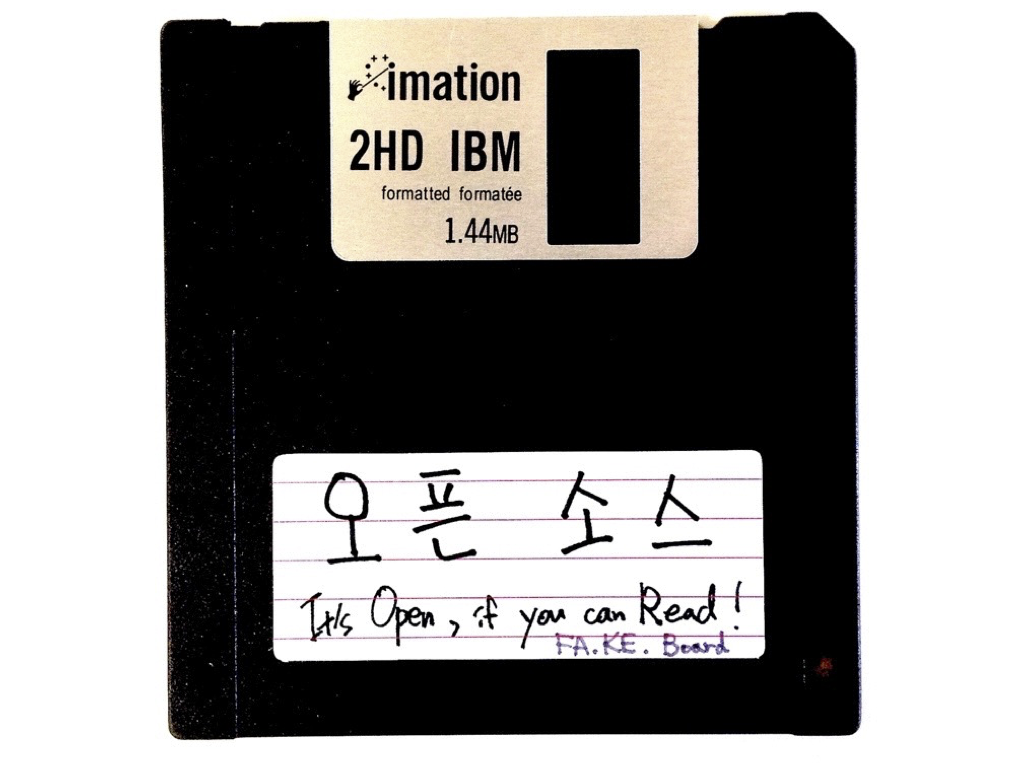 imation
2HD IBM
formatted formatée
1.44MB
오픈 소스
It's Open, if you can Read!
FA.KE. Board